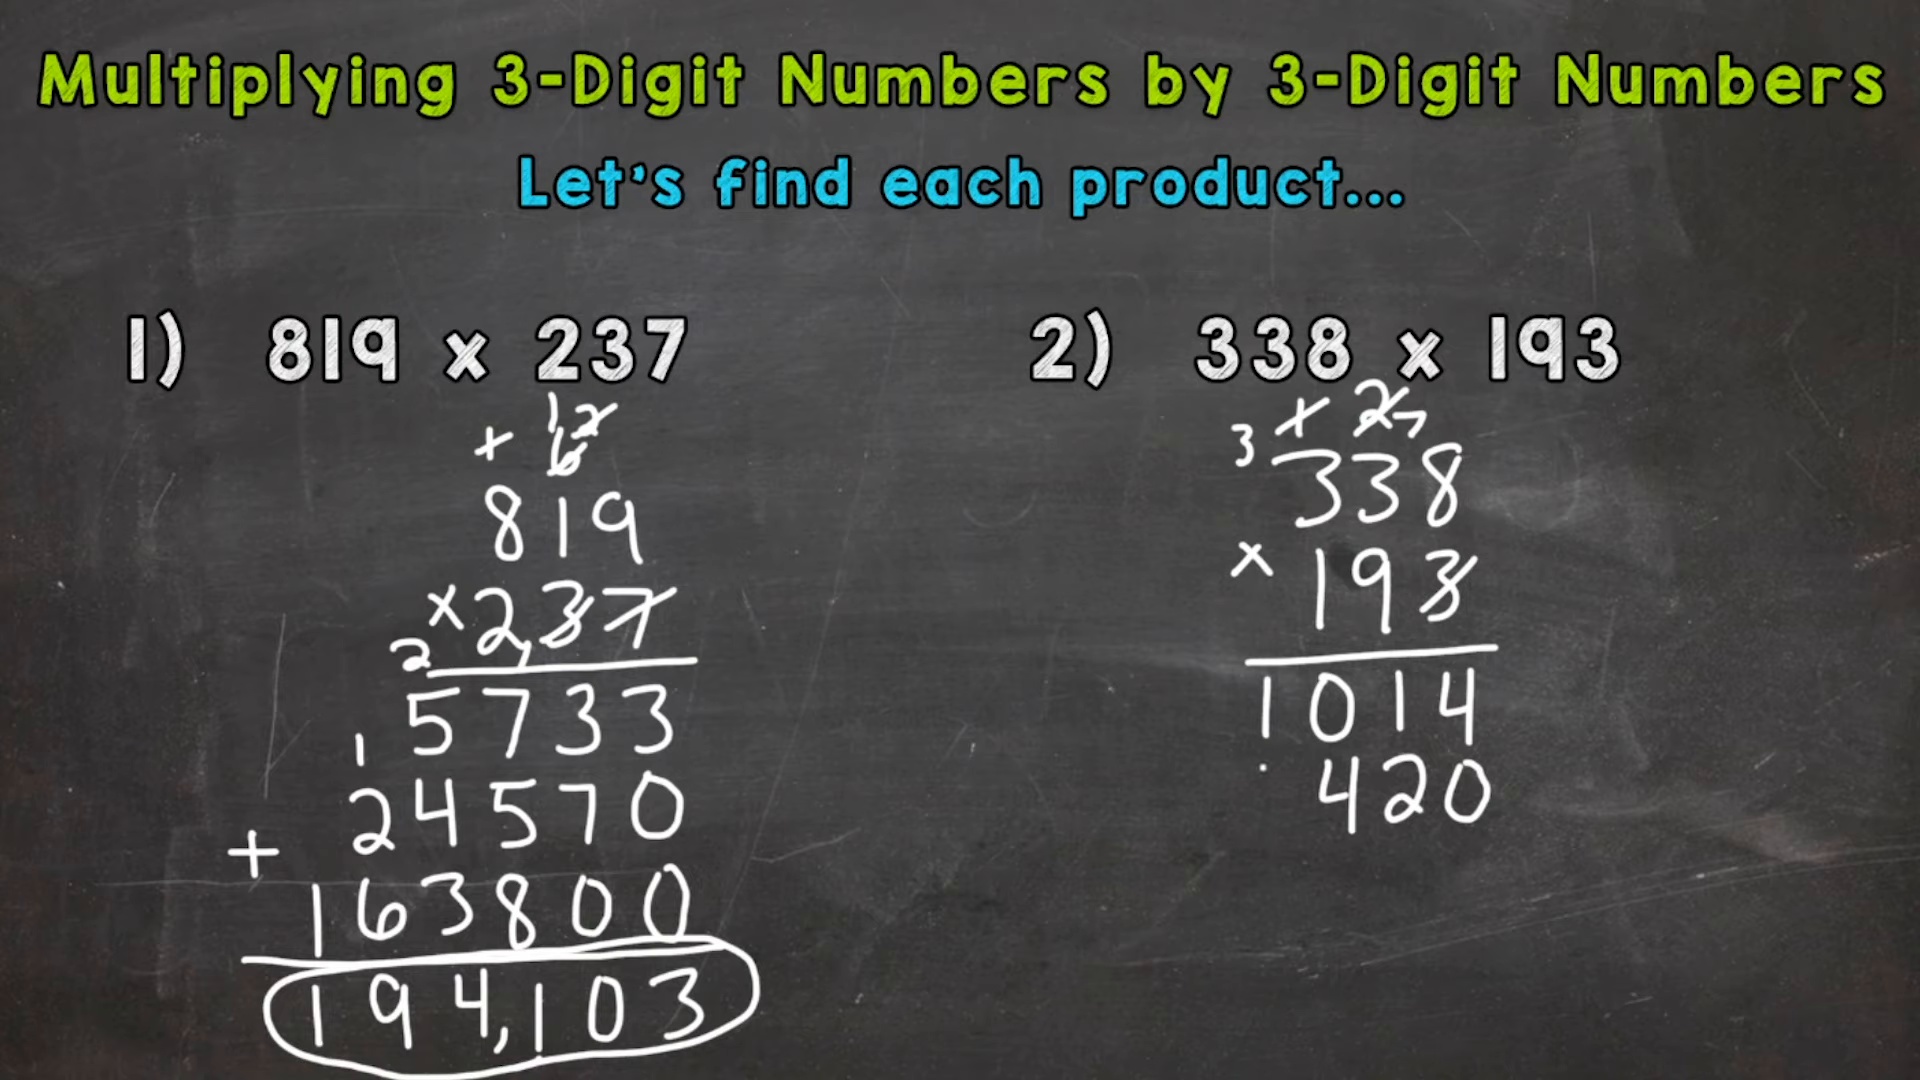 Multiplying 3-Digit Numbers by 3-Digit Numbers
Let's find each product...
1) 819 x 237
1 2
+ 6
819
x 2,37
2
5733
1
24570
+
163800
194,103
2) 338 x 193
3 1 2 7
338
x 193
1014
420